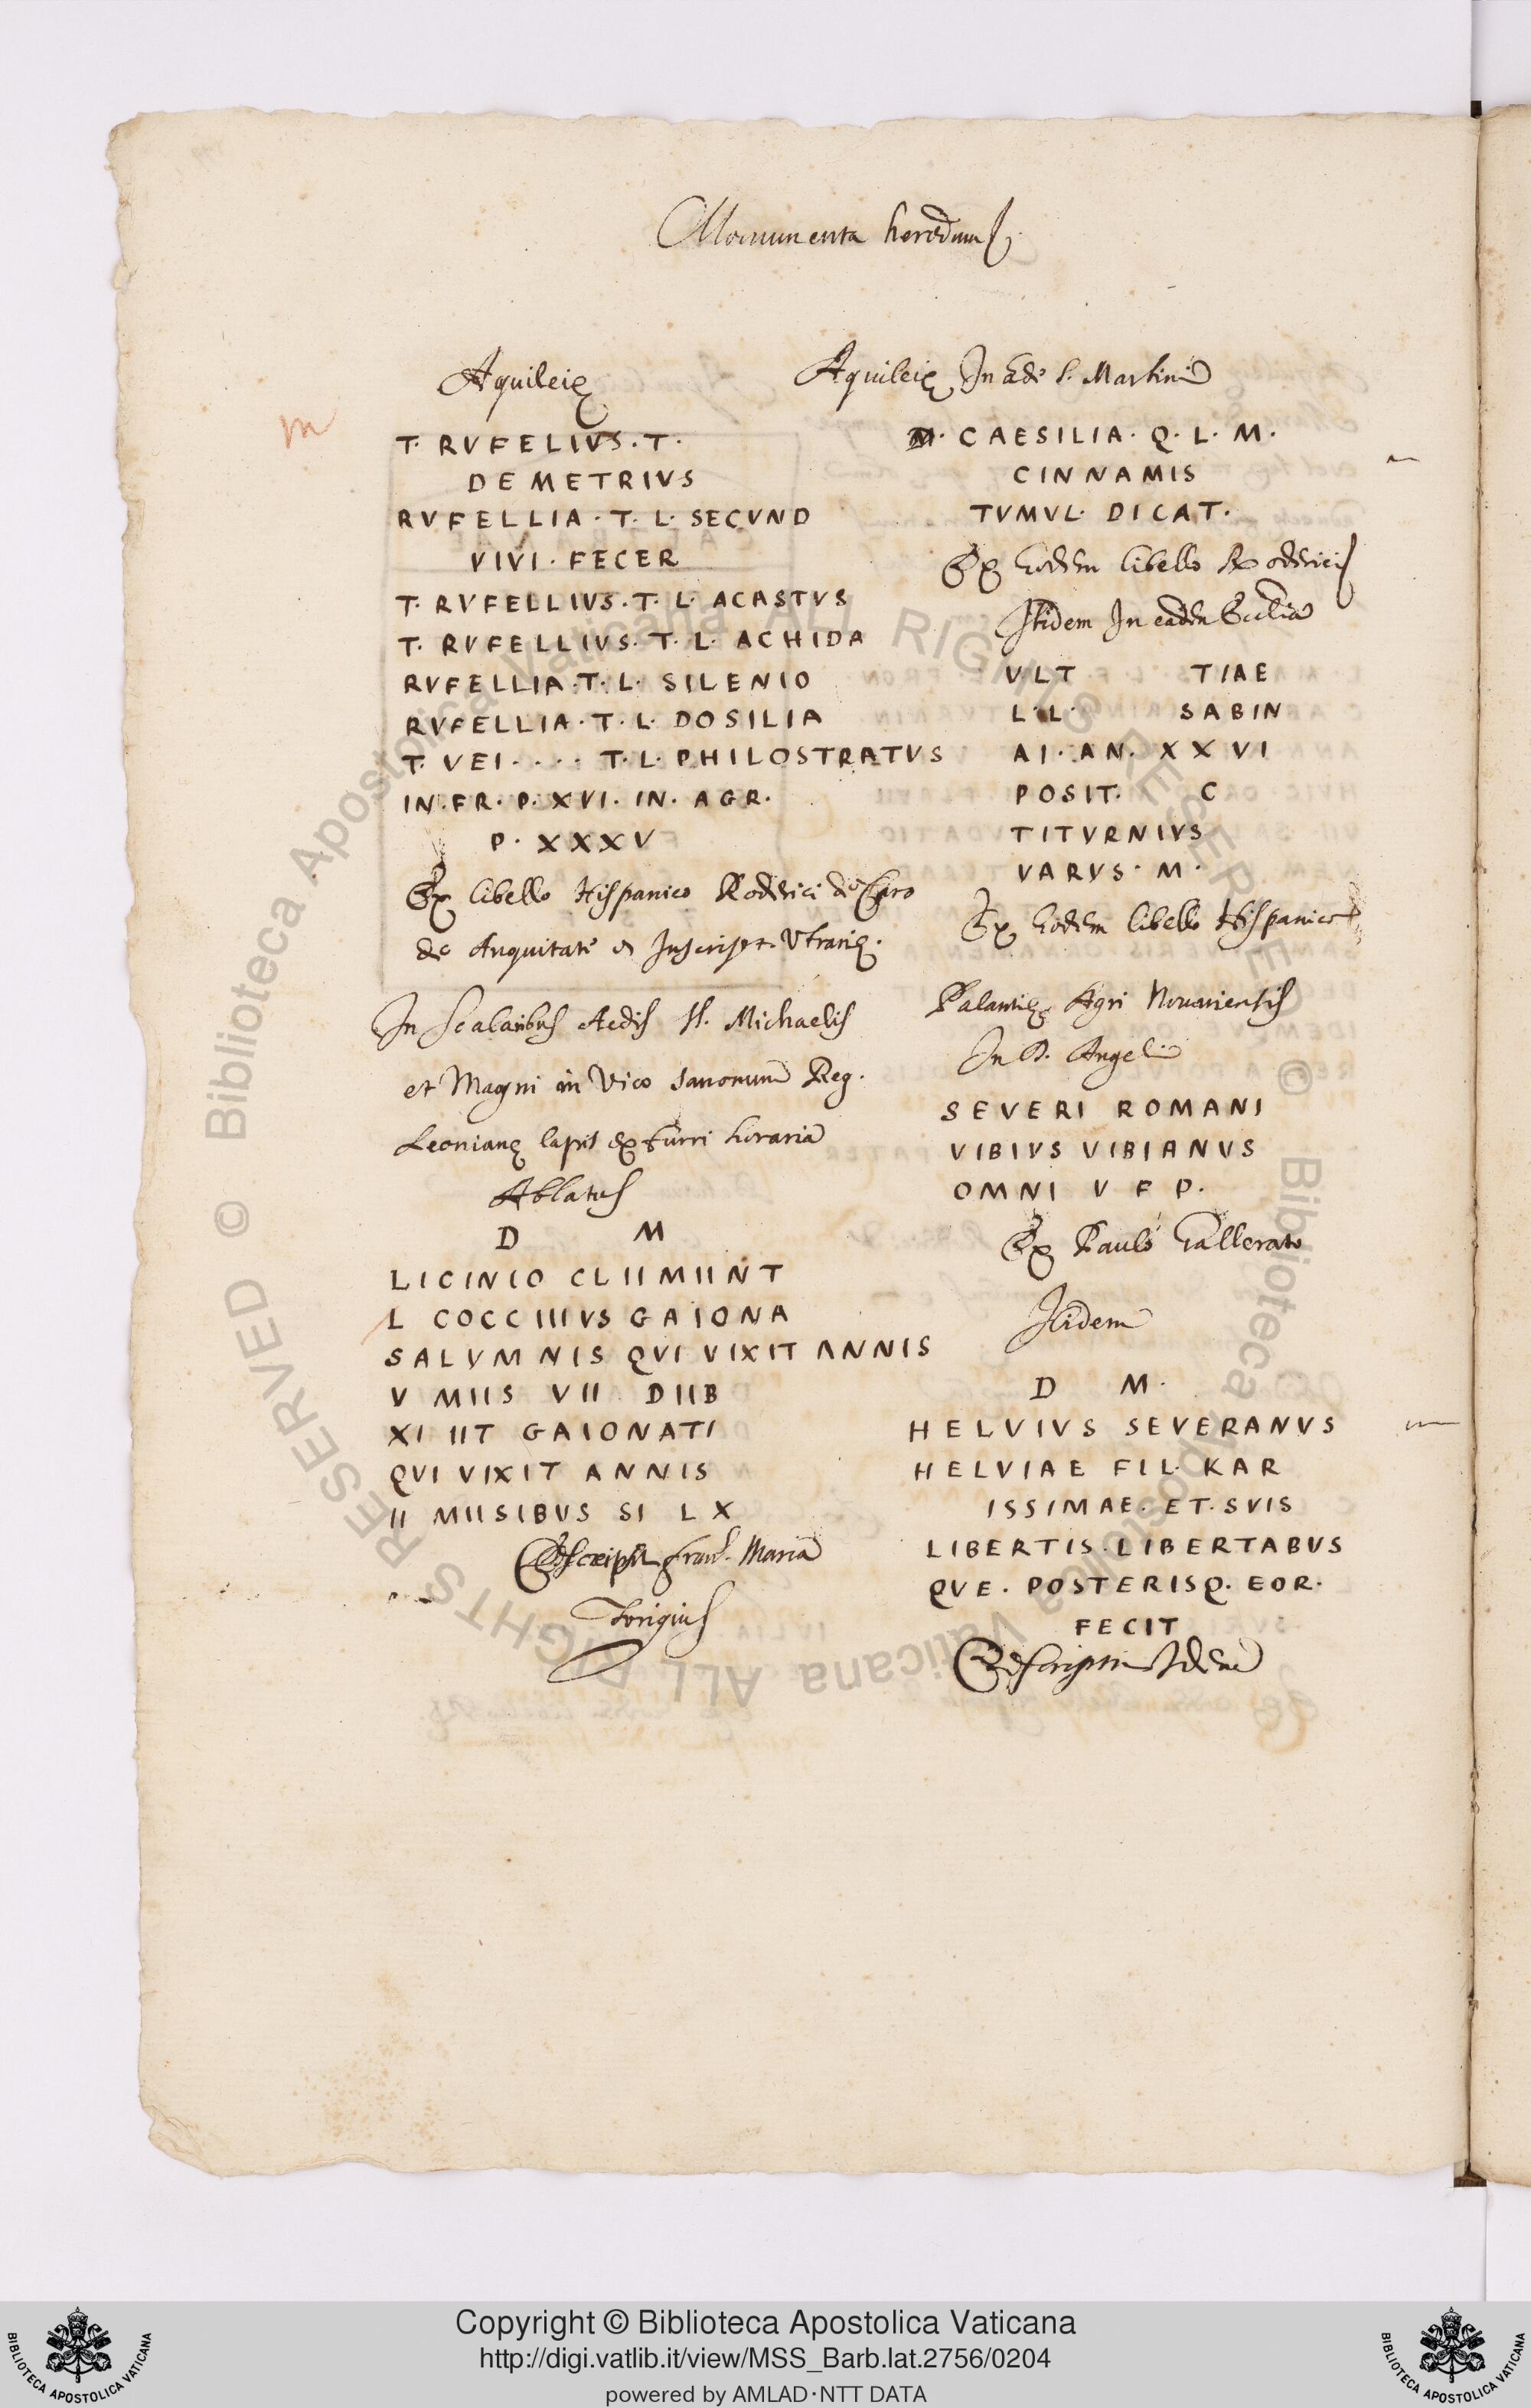 Monumenta heredum
Aquileię
T. RVFELIVS . T .
DEMETRIVS
RVFELLIA . T. L. SECVND
VIVI . FECER
T. RVFELLIVS . T. L. ACASTVS
T. RVFELLIVS . T. L. ACHIDA
RVFELLIA . T. L. SILENIO
RVFELLIA . T. L. DOSILIA
T. VEI . . . . T. L. PHILOSTRATVS
IN . FR . P. XVI . IN . AGR .
P . XXXV
Ex libello Hispanico Roderici de Caro
de Anquitate et Inscript. Vtrarię .
In Scalaribus Aedis SS. Michaelis
et Magni in Vico saxonum Reg .
Leonianę lapis ex turri horaria
Ablatus
D M
LICINIO CLIIMIINT
L COCCIIIVS GAIONA
SALVMNIS QVI VIXIT ANNIS
V MIIS VII DIIB
XI IIT GAIONATI
QVI VIXIT ANNIS
II MIISIBVS SI LX
Descripsit Franc. Maria
Torigius
Aquileię In Ede S. Martini
M . CAESILIA . Q . L . M .
CINNAMIS
TVMVL . DICAT .
Ex Eodem libello Roderici
Itidem In eadem Ecclia
V . LT TIAE
L . L . SABIN
AI . AN . XXVI
POSIT . C
TITVRNIVS
VARVS . M .
Ex Eodem libello Hispanico
Agri Nouariensis
In D. Angeli
SEVERI ROMANI
VIBIVS VIBIANVS
OMNI V F P .
Ex Paulo Gallerato
Itidem
D M .
HELVIVS SEVERANVS
HELVIAE FIL . KAR
ISSIMAE . ET . SVIS
LIBERTIS . LIBERTABVS
QVE . POSTERISQ . EOR .
FECIT
Descripsit Idem
© Biblioteca Apostolica Vaticana ALL RIGHTS RESERVED © Biblioteca Apostolica Vaticana ALL RIGHTS RESERVED
Copyright © Biblioteca Apostolica Vaticana
http://digi.vatlib.it/view/MSS_Barb.lat.2756/0204
powered by AMLAD·NTT DATA
BIBLIOTECA APOSTOLICA VATICANA
BIBLIOTECA APOSTOLICA VATICANA